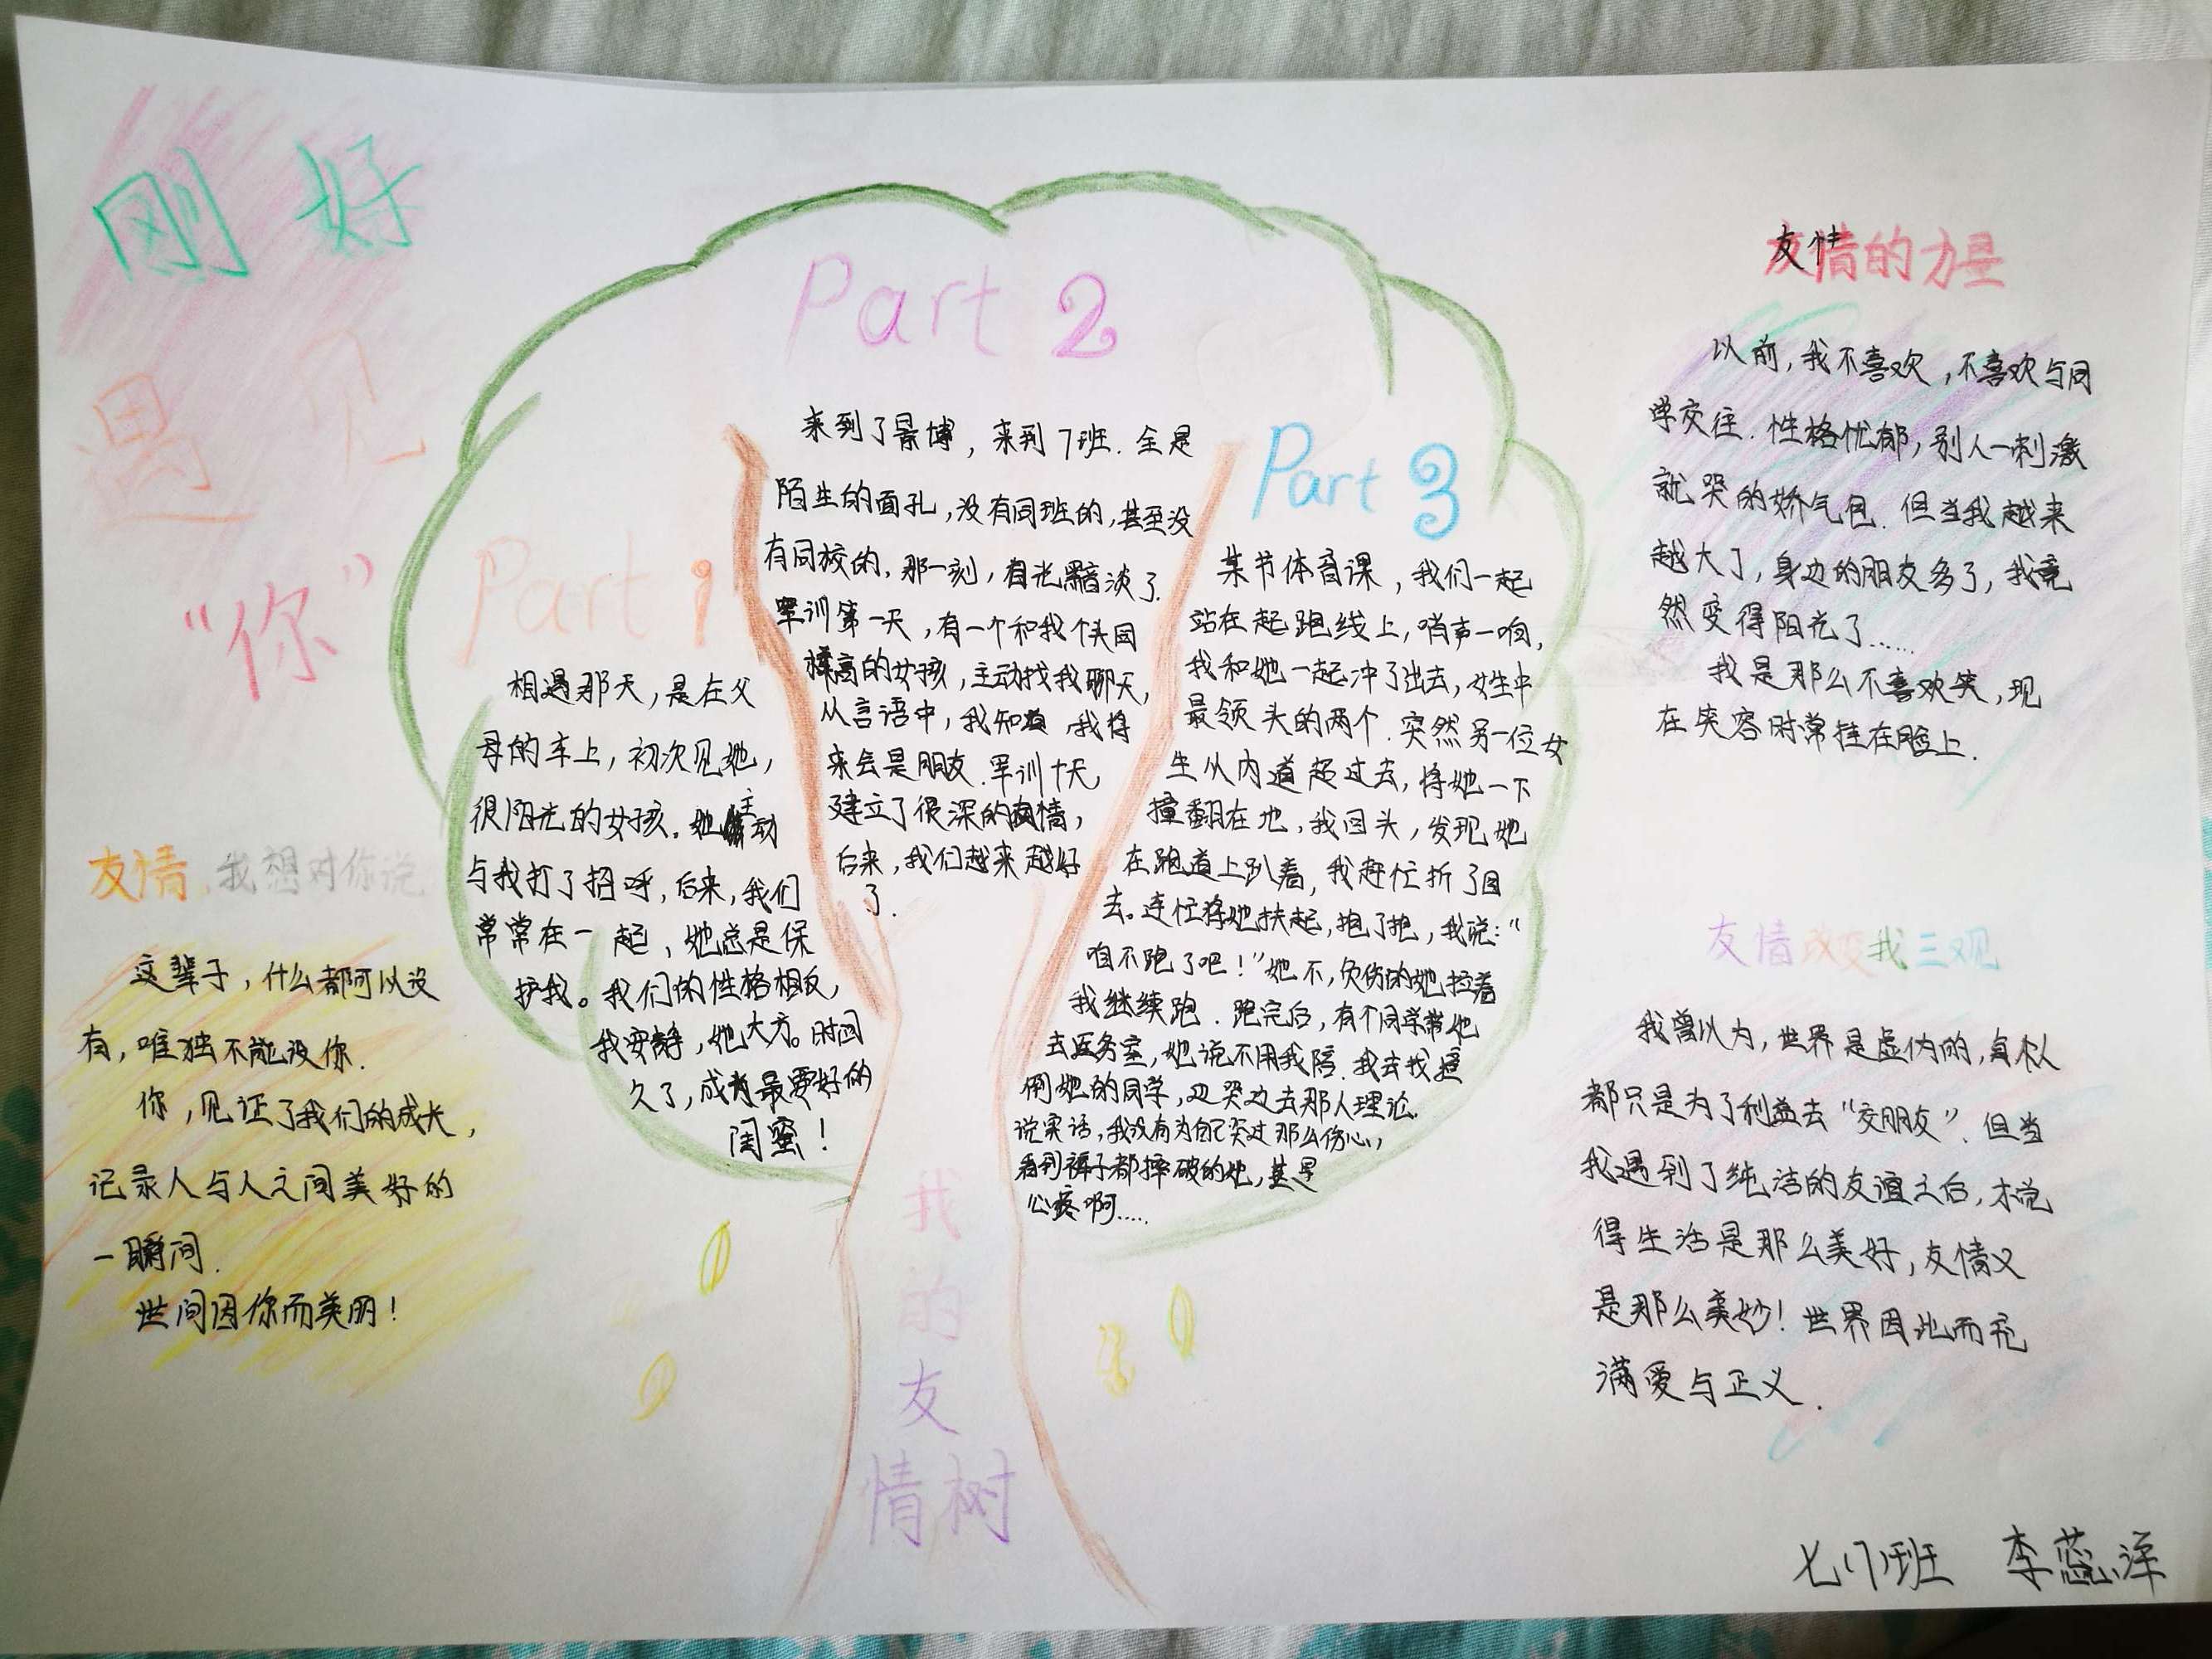 刚好
遇见
“你”
友情，我想对你说
这辈子，什么都可以没
有，唯独不能没你.
你，见证了我们的成长，
记录人与人之间美好的
一瞬间.
世间因你而美丽！
Part 1
相遇那天，是在父
母的车上，初次见她，
很阳光的女孩。她主动
与我打了招呼，后来，我们
常常在一起，她总是保
护我。我们的性格相反，
我安静，她大方。时间
久了，成为最要好的
闺蜜！
Part 2
来到了景博，来到7班.全是
陌生的面孔，没有同班的，甚至没
有同校的，那一刻，目光黯淡了.
军训第一天，有一个和我个头同
样高的女孩，主动找我聊天，
从言语中，我知道，我将
来会是朋友.军训十天，
建立了很深的友情，
后来，我们越来越好
了.
Part 3
某节体育课，我们一起
站在起跑线上，哨声一响，
我和她一起冲了出去，女生中
最领头的两个.突然另一位女
生从内道超过去，将她一下
撞翻在地，我回头，发现她
在跑道上趴着，我赶忙折了回
去。连忙将她扶起，抱了抱，我说：“
咱不跑了吧！”她不，负伤的她拉着
我继续跑.跑完后，有个同学带她
去医务室，她说不用我陪.我去找撞
倒她的同学，边哭边去那人理论.
说实话，我没有为自己哭过那么伤心，
看到裤子都摔破的她，甚是
心疼啊.....
我的友情树
友情
友情的力量
以前，我不喜欢，不喜欢与同
学交往.性格忧郁，别人一刺激
就哭的娇气包.但当我越来
越大了，身边的朋友多了，我竟
然变得阳光了......
我是那么不喜欢笑，现
在笑容时常挂在脸上.
友情改变我三观
我曾以为，世界是虚伪的，每个人
都只是为了利益去“交朋友”.但当
我遇到了纯洁的友谊之后，才觉
得生活是那么美好，友情又
是那么美妙！世界因此而充
满爱与正义.
七(7)班 李蕊洋